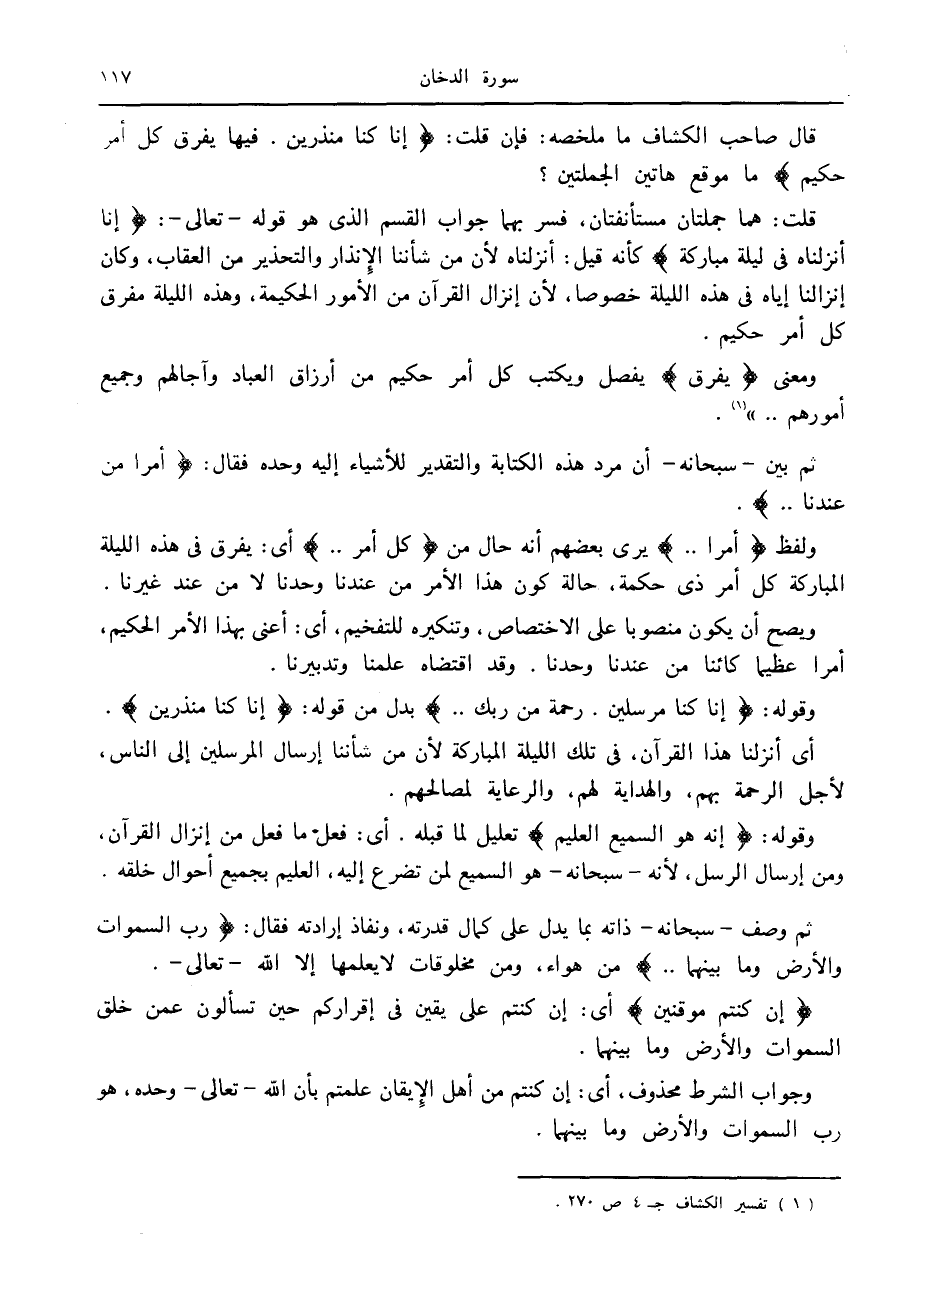 سورة الدخان ١١٧
قال صاحب الكشاف ما ملخصه: فإن قلت: ﴿ إنا كنا منذرين . فيها يفرق كل أمر
حكيم ﴾ ما موقع هاتين الجملتين ؟
قلت: هما جملتان مستأنفتان، فسر بهما جواب القسم الذى هو قوله -تعالى-: ﴿ إنا
أنزلناه فى ليلة مباركة ﴾ كأنه قيل: أنزلناه لأن من شأننا الإنذار والتحذير من العقاب، وكان
إنزالنا إياه فى هذه الليلة خصوصا، لأن إنزال القرآن من الأمور الحكيمة، وهذه الليلة مفرق
كل أمر حكيم .
ومعنى ﴿ يفرق ﴾ يفصل ويكتب كل أمر حكيم من أرزاق العباد وآجالهم وجميع
أمورهم .. »(١) .
ثم بين -سبحانه- أن مرد هذه الكتابة والتقدير للأشياء إليه وحده فقال: ﴿ أمرا من
عندنا .. ﴾ .
ولفظ ﴿ أمرا .. ﴾ يرى بعضهم أنه حال من ﴿ كل أمر .. ﴾ أى: يفرق فى هذه الليلة
المباركة كل أمر ذى حكمة، حالة كون هذا الأمر من عندنا وحدنا لا من عند غيرنا .
ويصح أن يكون منصوبا على الاختصاص، وتنكيره للتفخيم، أى: أعنى بهذا الأمر الحكيم،
أمرا عظيما كائنا من عندنا وحدنا . وقد اقتضاه علمنا وتدبيرنا .
وقوله: ﴿ إنا كنا مرسلين . رحمة من ربك .. ﴾ بدل من قوله: ﴿ إنا كنا منذرين ﴾ .
أى أنزلنا هذا القرآن، فى تلك الليلة المباركة لأن من شأننا إرسال المرسلين إلى الناس،
لأجل الرحمة بهم، والهداية لهم، والرعاية لمصالحهم .
وقوله: ﴿ إنه هو السميع العليم ﴾ تعليل لما قبله . أى: فعل ما فعل من إنزال القرآن،
ومن إرسال الرسل، لأنه -سبحانه- هو السميع لمن تضرع إليه، العليم بجميع أحوال خلقه .
ثم وصف -سبحانه- ذاته بما يدل على كمال قدرته، ونفاذ إرادته فقال: ﴿ رب السموات
والأرض وما بينهما .. ﴾ من هواء، ومن مخلوقات لايعلمها إلا الله -تعالى- .
﴿ إن كنتم موقنين ﴾ أى: إن كنتم على يقين فى إقراركم حين تسألون عمن خلق
السموات والأرض وما بينهما .
وجواب الشرط محذوف، أى: إن كنتم من أهل الإيقان علمتم بأن الله -تعالى- وحده، هو
رب السموات والأرض وما بينهما .
(١) تفسير الكشاف جـ ٤ ص ٢٧٠ .